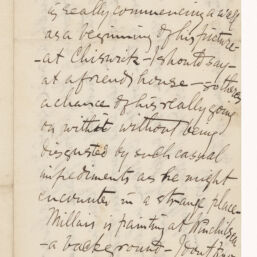 is really commencing a well
as a beginning of his picture -
- at Chiswick - I should say -
at a friends house - so there's
a chance of his really going
on with it without being
disgusted by such casual
impediments as he might
encounter in a strange place -
Millais is painting at Winchilsea
- a background - I don't know